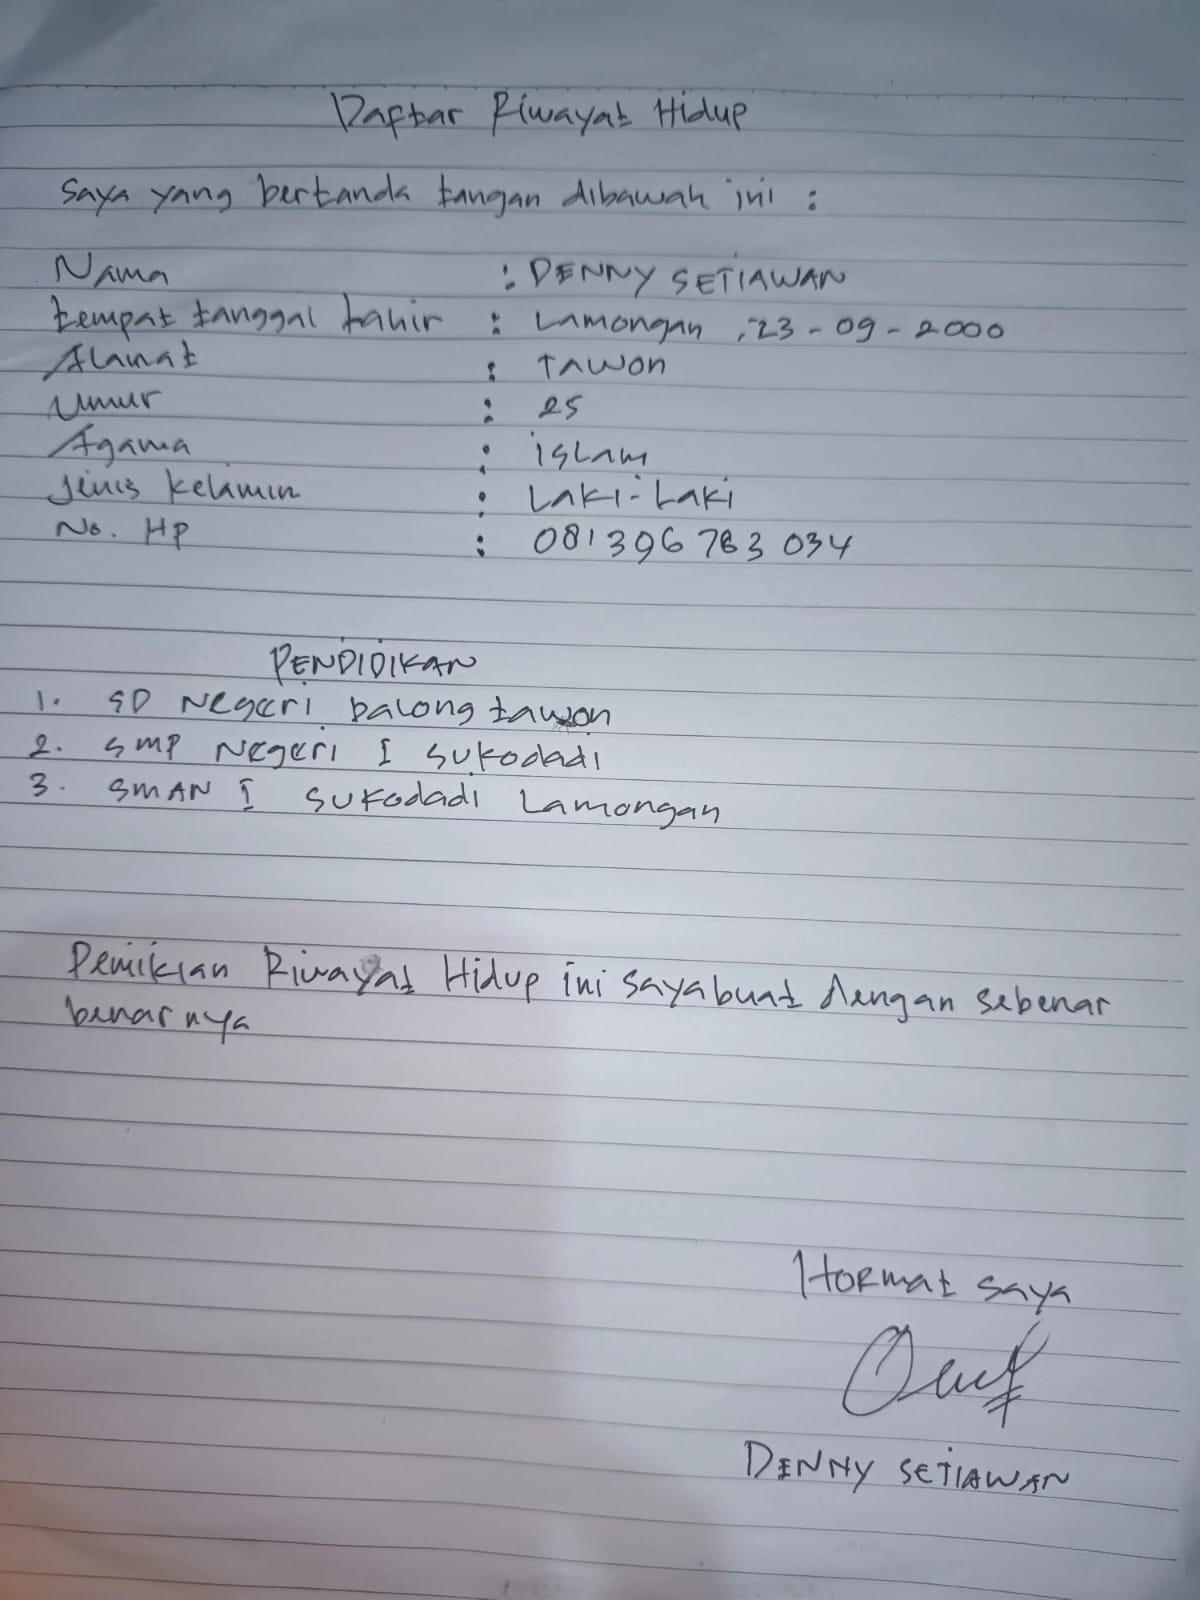 Daftar Riwayat Hidup
Saya yang bertanda tangan dibawah ini :
Nama : DENNY SETIAWAN
tempat tanggal lahir : Lamongan, 23-09-2000
Alamat : TAWON
Umur : 25
Agama : islam
Jenis kelamin : LAKI-LAKI
No. HP : 081396783034
PENDIDIKAN
1. SD Negeri balong tawon
2. SMP Negeri I sukodadi
3. SMAN I sukodadi Lamongan
Demikian Riwayat Hidup ini saya buat dengan sebenar
benarnya
Hormat saya
DENNY SETIAWAN